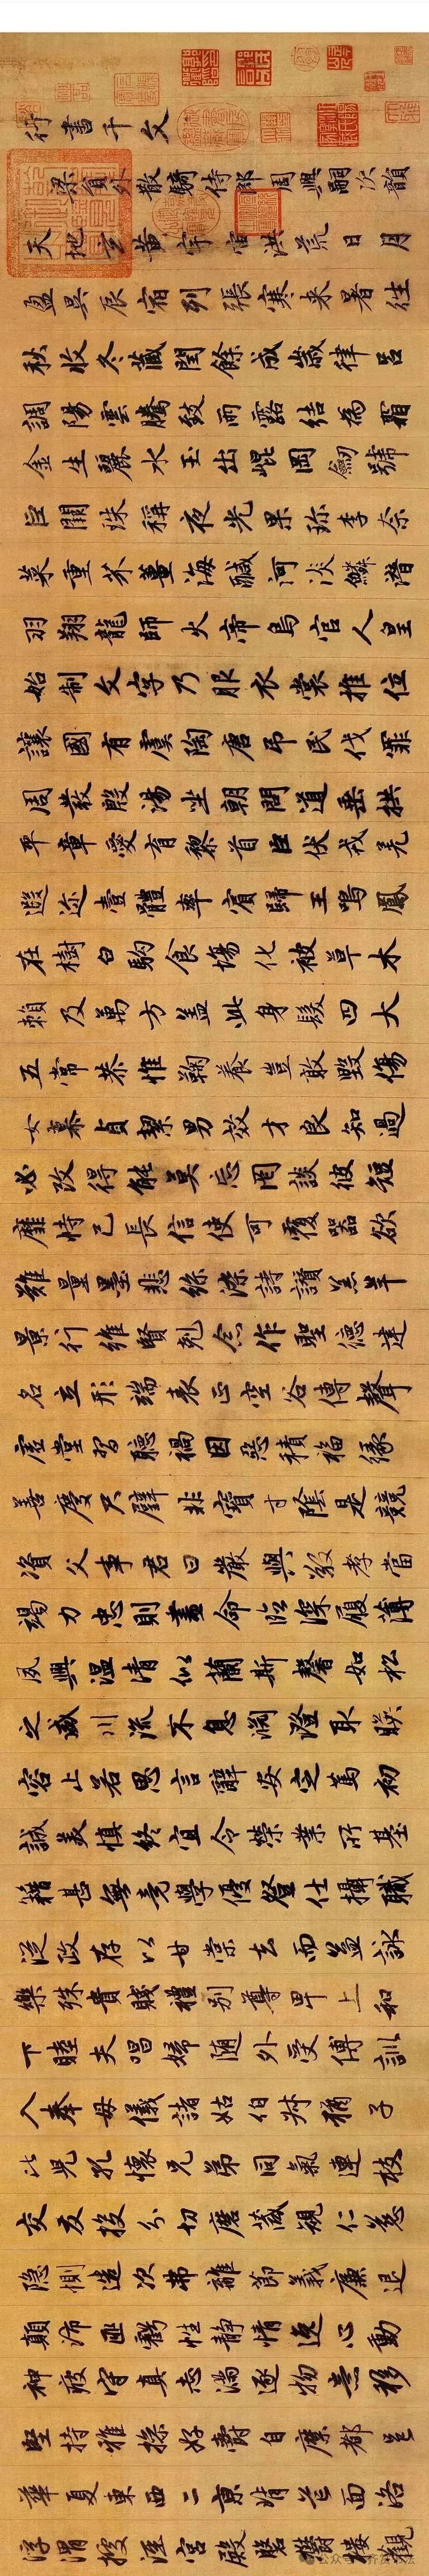 行書千文
梁員外散騎侍郎周興嗣次韻
天地玄黃宇宙洪荒日月
盈昃辰宿列張寒来暑往
秋收冬藏閏餘成歲律呂
調陽雲騰致雨露結為霜
金生麗水玉出崐岡劒號
巨闕珠稱夜光果珍李柰
菜重芥薑海醎河淡鱗潛
羽翔龍師火帝鳥官人皇
始制文字乃服衣裳推位
讓國有虞陶唐弔民伐罪
周發殷湯坐朝問道垂拱
平章愛育黎首臣伏戎羌
遐迩壹體率賓歸王鳴鳳
在樹白駒食場化被草木
賴及萬方蓋此身髮四大
五常恭惟鞠養豈敢毀傷
女慕貞潔男效才良知過
必改得能莫忘罔談彼短
靡恃己長信使可覆器欲
難量墨悲絲染詩讚羔羊
景行維賢剋念作聖德建
名立形端表正空谷傳聲
虛堂習聽禍因惡積福緣
善慶尺璧非寶寸陰是競
資父事君曰嚴與敬孝當
竭力忠則盡命臨深履薄
夙興溫清似蘭斯馨如松
之盛川流不息淵澄取暎
容止若思言辭安定篤初
誠美慎終宜令榮業所基
籍甚無竟學優登仕攝職
從政存以甘棠去而益詠
樂殊貴賤禮別尊卑上和
下睦夫唱婦隨外受傅訓
入奉母儀諸姑伯叔猶子
比兒孔懷兄弟同氣連枝
交友投分切磨箴規仁慈
隱惻造次弗離節義廉退
顛沛匪虧性靜情逸心動
神疲守真志滿逐物意移
堅持雅操好爵自縻都邑
華夏東西二京背芒面洛
浮渭據涇宮殿盤鬱樓觀